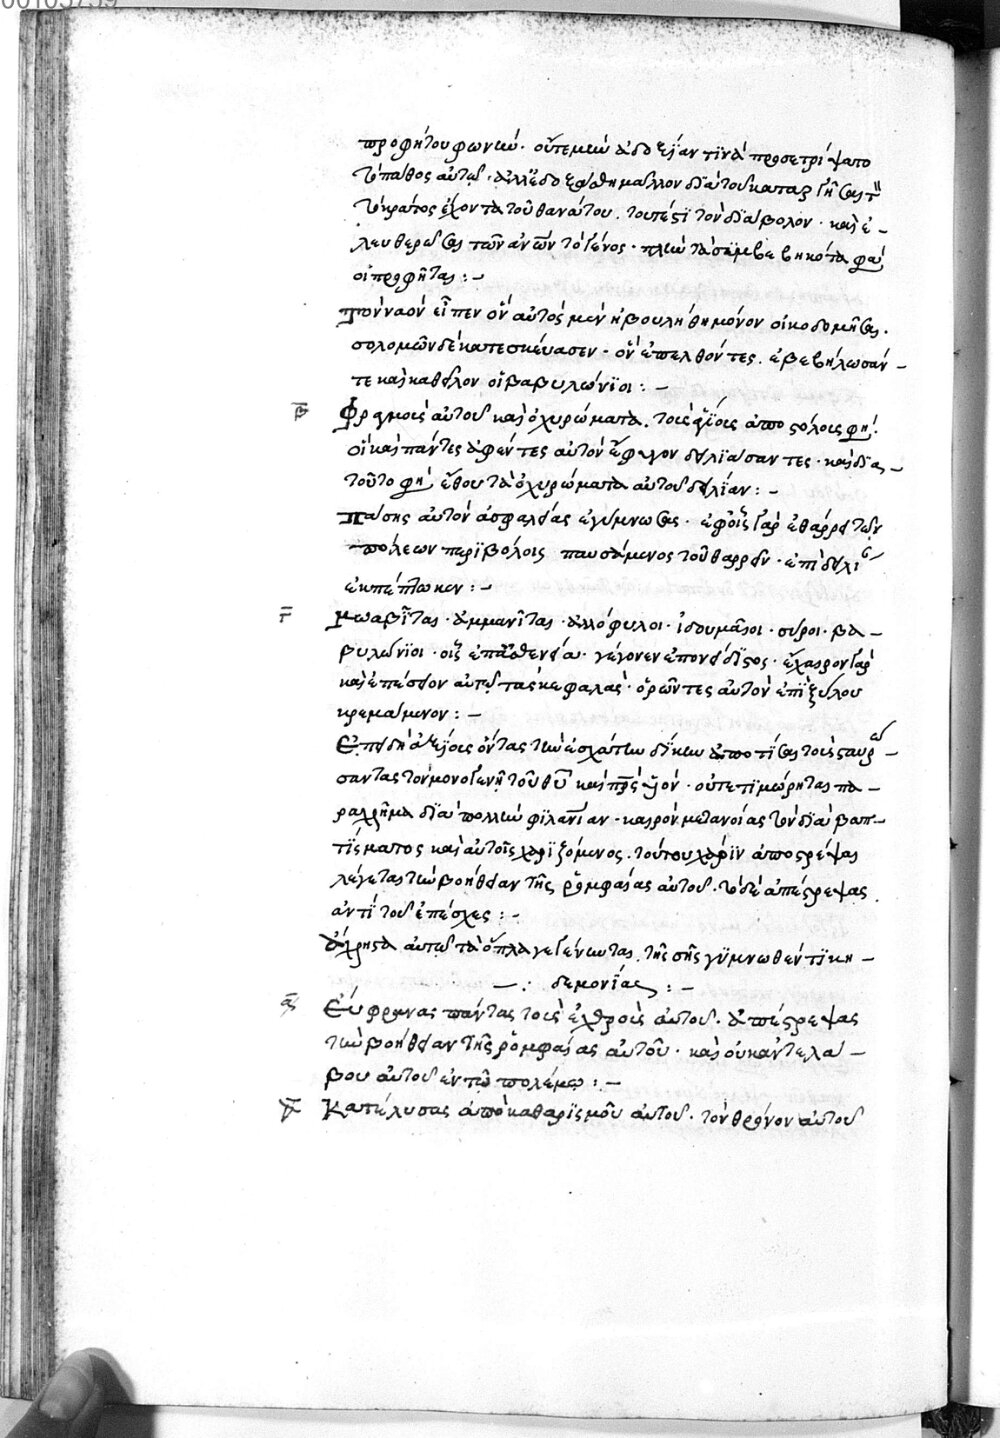 00105759
προφήτου φωνήν. οὔτε μὴν ἀδοξίαν τινὰ προσετρίψατο
τὸ πάθος αὐτῶ. ἀλλ' ἐδοξάσθη μᾶλλον διὰ τοῦ καταργῆσαι τ
τὸ κράτος ἔχοντα τοῦ θανάτου. τουτέστι τὸν διάβολον. καὶ ἐ-
λευθερῶσαι τῶν ἀνων τὸ γένος. πλὴν τὰ συμβεβηκότα φα
οἱ προφῆται :-
τὸν ναὸν εἶπεν ὃν αὐτὸς μὲν ἠβουλήθη μόνον οἰκοδομῆσαι.
σολομῶν δὲ κατεσκεύασεν. ὃν ἐπελθόντες. ἐβεβήλωσάν-
τε καὶ καθεῖλον οἱ βαβυλώνιοι :-
β φραγμοὺς αὐτοῦ καὶ ὀχυρώματα. τοὺς ἁγίους ἀποστόλους φη.
οἳ καὶ πάντες ἀφέντες αὐτὸν ἔφυγον δειλιάσαντες. καὶ δια-
τοῦτο φη ἔθου τὰ ὀχυρώματα αὐτοῦ δειλίαν :-
πάσης αὐτὸν ἀσφαλείας ἐγύμνωσας. ἐφ' οἷς γὰρ ἐθάρρει τῶν
πόλεων περιβόλοις παυσάμενος τοῦ θαρρεῖν. ἐπὶ δειλι
ἐκπέπτωκεν :-
γ μωαβῖται. ἀμμανῖται. ἀλλόφυλοι. ἰδουμαῖοι. σύροι. βα-
βυλώνιοι. οἷς ἐπαθεν γέγονεν ἐπονείδιστος. ἔχαιρον γὰρ
καὶ ἐπέσειον αὐτῶ τὰς κεφαλάς. ὁρῶντες αὐτὸν ἐπὶ ξύλου
κρεμάμενον :-
Ἐπειδὴ ἀξίους ὄντας τὴν ἐσχάτην δίκην ἀποτίσαι τοὺς σταυρ-
σαντας τὸν μονογενῆ τοῦ θυ καὶ πρς υἱόν. οὔτε τιμωρῆται πα-
ραχρῆμα διὰ πολλὴν φιλανίαν. καιρὸν μετανοίας τὸν διὰ βαπ-
τίσματος καὶ αὐτοῖς χαριζόμενος. τούτου χάριν ἀποστρέψαι
λέγεται τὴν βοήθειαν τῆς ῥομφαίας αὐτοῦ. τὸ δὲ ἀπέστρεψας
ἀντὶ τοῦ ἐπέσχες :-
ἄχρηστα αὐτῶ τὰ ὅπλα γεγένωται. τῆς σῆς γυμνωθέντι κη-
-.: δεμονίας :-
α Εὔφρανας πάντας τοὺς ἐχθροὺς αὐτοῦ. ἀπέστρεψας
τὴν βοήθειαν τῆς ῥομφαίας αὐτοῦ. καὶ οὐκ ἀντελά-
βου αὐτοῦ ἐν τῶ πολέμω :-
Κατέλυσας ἀπὸ καθαρισμοῦ αὐτοῦ. τὸν θρόνον αὐτοῦ